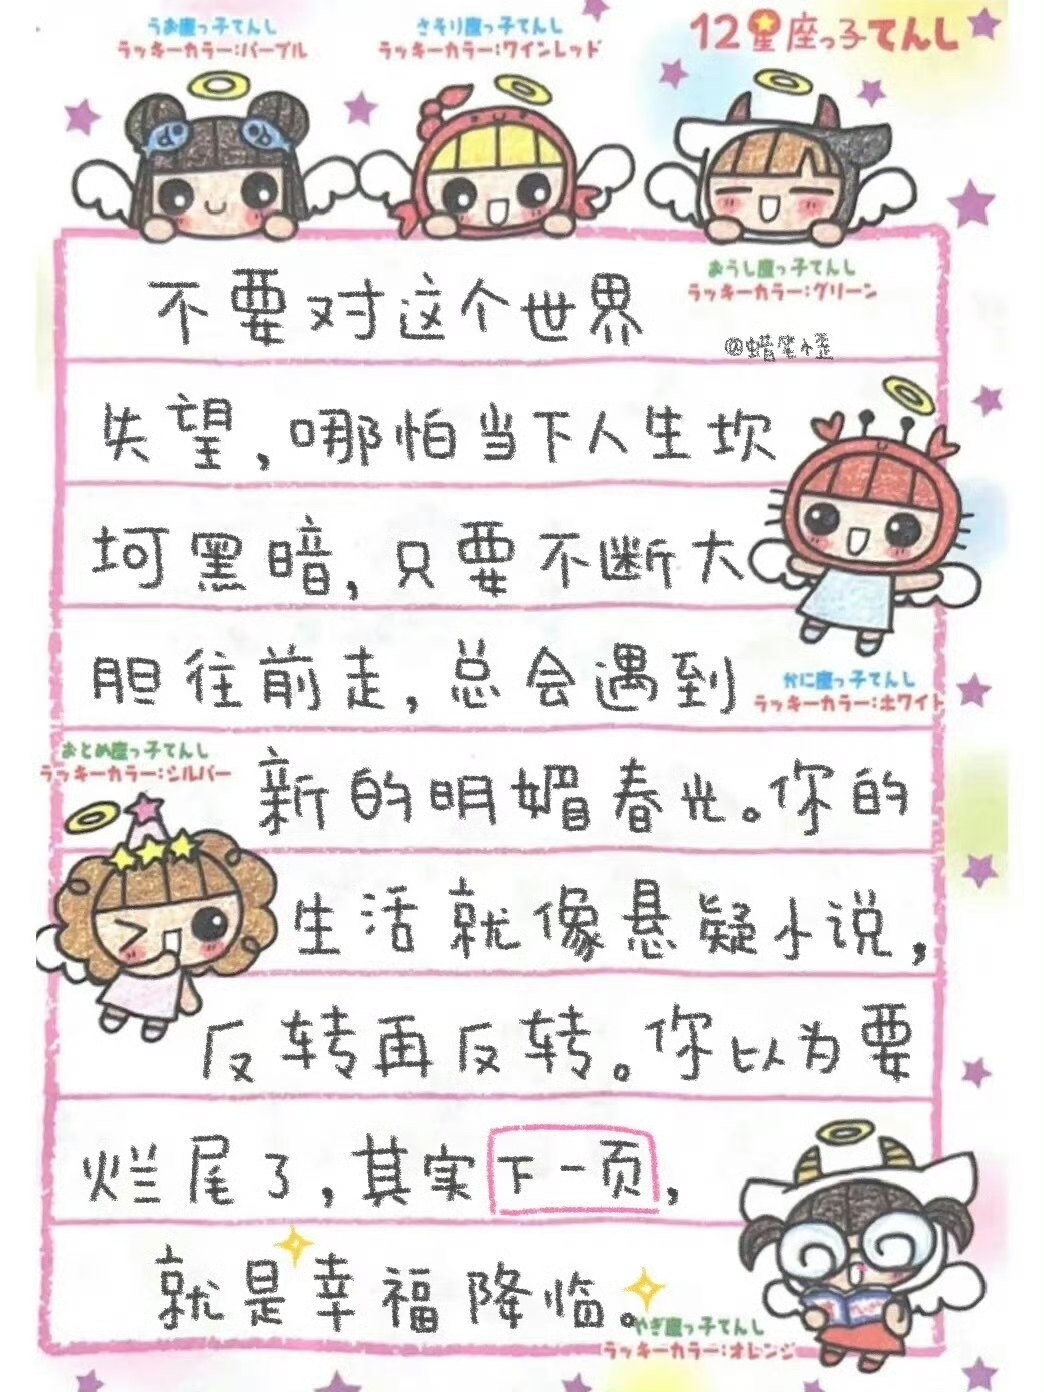 うお座っ子てんし
ラッキーカラー:パープル
さそり座っ子てんし
ラッキーカラー:ワインレッド
12星座っ子てんし
おうし座っ子てんし
ラッキーカラー:グリーン
不要对这个世界
@蜡笔小歪
失望,哪怕当下人生坎
坷黑暗,只要不断大
胆往前走,总会遇到
かに座っ子てんし
ラッキーカラー:ホワイト
おとめ座っ子てんし
ラッキーカラー:シルバー
新的明媚春光。你的
生活就像悬疑小说,
反转再反转。你以为要
烂尾了,其实下一页,
就是幸福降临。
やぎ座っ子てんし
ラッキーカラー:オレンジ